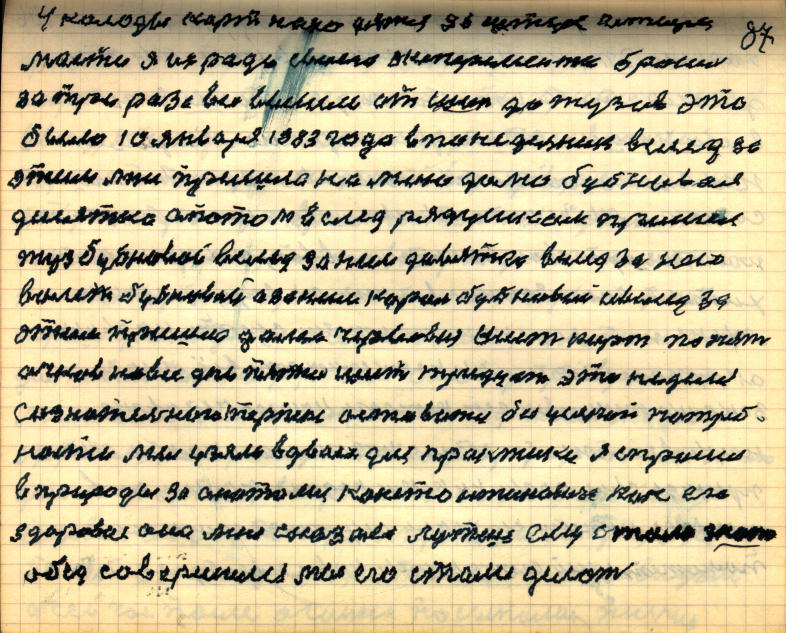 87
4 колоды карт находятся за четыре
масти я их ради своего эксперимента бросил
за три раза все вышли от шести до тузов это
было 10 января 1983 года в понедельник вслед за
этим мне пришла на мено дома бубновая
десятка а потом вслед рядушком пришел
туз бубновой вслед за ним девятка вслед за нею
валет бубновай а за ним король бубновый и вслед за
этим пришла дама червовая шест карт по пят
очков на все дне пятью шест тридцат это неделя
сознательного терпения оставатся без усякой потреб-
ности мы узяли в двоих для практики я спросил
в природы за анатолия как его
здоровье она мне сказала лутше ему стало
обед совершили мы его стали делат